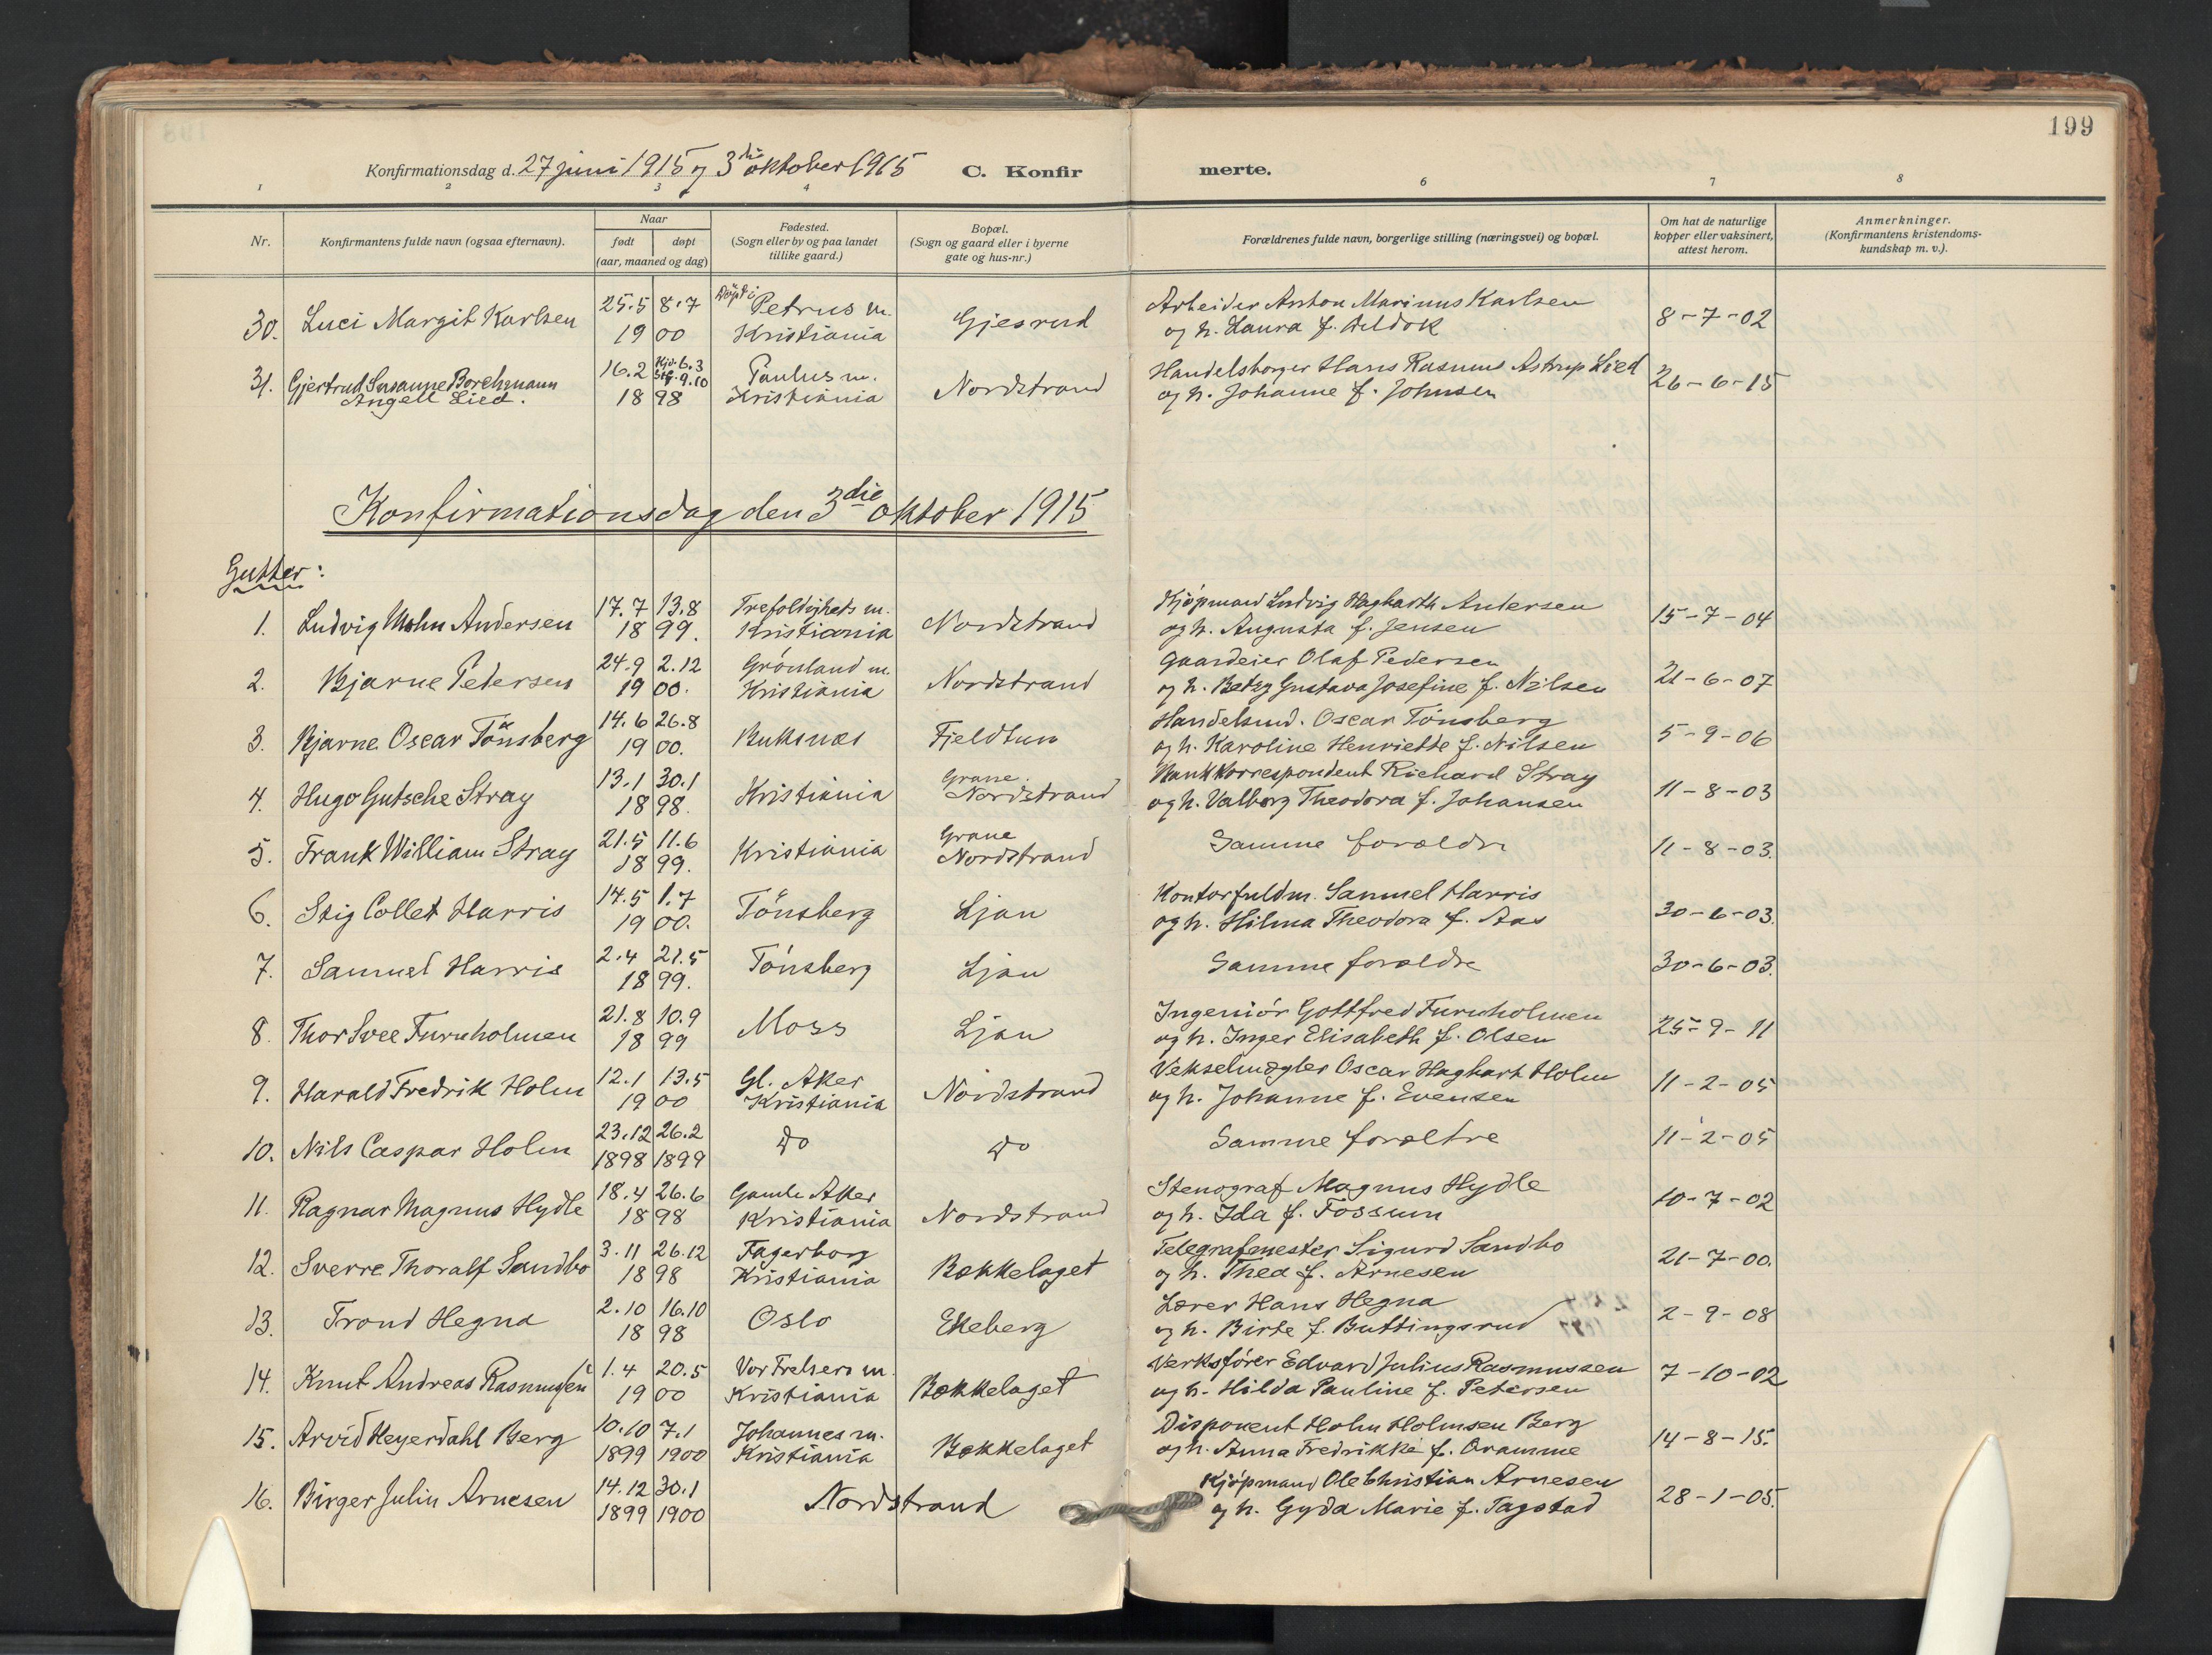 199
Konfirmationsdag d. 27 juni 1915 og 3die oktober 1915 C. Konfirmerte.
1 2 3 4 6 7 8
Nr.
Konfirmantens fulde navn (ogsaa efternavn).
Naar
født døpt
(aar, maaned og dag)
Fødested.
(Sogn eller by og paa landet
tillike gaard.)
Bopæl.
(Sogn og gaard eller i byerne
gate og hus-nr.)
Forældrenes fulde navn, borgerlige stilling (næringsvei) og bopæl.
Om hat de naturlige
kopper eller vaksinert,
attest herom.
Anmerkninger.
(Konfirmantens kristendoms-
kundskap m. v.).
30. Luci Margit Karlsen 25.5 8.7 Døpt i Petrus m. Gjesrud Arbeider Anton Marinus Karlsen 8-7-02
1900 Kristiania og h. Laura f.
31. Gjertrud Susanne Borchmann 16.2 Hjd. 6.3 Paulus m. Nordstrand Handelsborger Hans Rasmus Astrup Lied 26-6-15
Angell Lied. 1898 9.10 Kristiania og h. Johanne f. Johnsen
Konfirmationsdag den 3die oktober 1915
Gutter:
1. Ludvig Mohn Andersen 17.7 13.8 Trefoldighets m. Nordstrand Kjøpmand Ludvig Hagbarth Andersen 15-7-04
1899. Kristiania og h. Augusta f. Jensen
2. Bjarne Petersen 24.9 2.12 Grønland m. Nordstrand Gaardeier Olaf Pedersen 21-6-07
1900. Kristiania og h. Betzy Gustava Josefine f. Nilsen
3. Bjarne Oscar Tönsberg 14.6 26.8 Buksnæs Fjeldtun Handelsmd. Oscar Tönsberg 5-9-06
1900. og h. Karoline Henriette f. Nilsen
4. Hugo Gutsche Stray 13.1 30.1 Kristiania Grane. Nordstrand Bankkorrespondent Richard Stray 11-8-03
1898. og h. Valborg Theodora f. Johansen
5. Frank William Stray 21.5 11.6 Kristiania Grane Nordstrand Samme forældre 11-8-03.
1899.
6. Stig Collet Harris 14.5 1.7 Tönsberg Ljan Kontorfuldm. Samuel Harris 30-6-03.
1900. og h. Hilma Theodora f. Aas
7. Samuel Harris 2.4 21.5 Tönsberg Ljan Samme forældre 30-6-03.
1899.
8. Thor Svee Furuholmen 21.8 10.9 Moss Ljan Ingeniør Gottfred Furuholmen 25-9-11
1899 og h. Inger Elisabeth f. Olsen
9. Harald Fredrik Holm 12.1 13.5 Gl. Aker Nordstrand Vekselmægler Oscar Hagbart Holm 11-2-05
1900 Kristiania og h. Johanne f. Evensen
10. Nils Caspar Holm 23.12 26.2 Do Do Samme forældre 11-2-05
1898 1899
11. Ragnar Magnus Hydle 18.4 26.6 Gamle Aker Nordstrand Stenograf Magnus Hydle 10-7-02
1898 Kristiania og h. Ida f. Fossum
12. Sverre Thoralf Sandbo 3.11 26.12 Fagerborg Bækkelaget Telegrafmester Sigurd Sandbo 21-7-00.
1898 Kristiania og h. Thea f. Arnesen
13. Trond Hegna 2.10 16.10 Oslo Ekeberg Lærer Hans Hegna 2-9-08
1898 og h. Birte f. Buttingsrud
14. Knut Andreas Rasmussen 1.4 20.5 Vor Frelsers m. Bækkelaget Verksfører Edvard Julius Rasmussen 7-10-02
1900 Kristiania og h. Hilda Pauline f. Petersen
15. Arvid Heyerdahl Berg 10.10 7.1 Johannes m. Bækkelaget Disponent Holm Holmsen Berg 14-8-15.
1899 1900 Kristiania og h. Anna Fredrikke f. Oramme
16. Birger Julin Arnesen 14.12 30.1 Nordstrand Kjøpmand Ole Christian Arnesen 28-1-05.
1899 1900 og h. Gyda Marie f. Tagstad